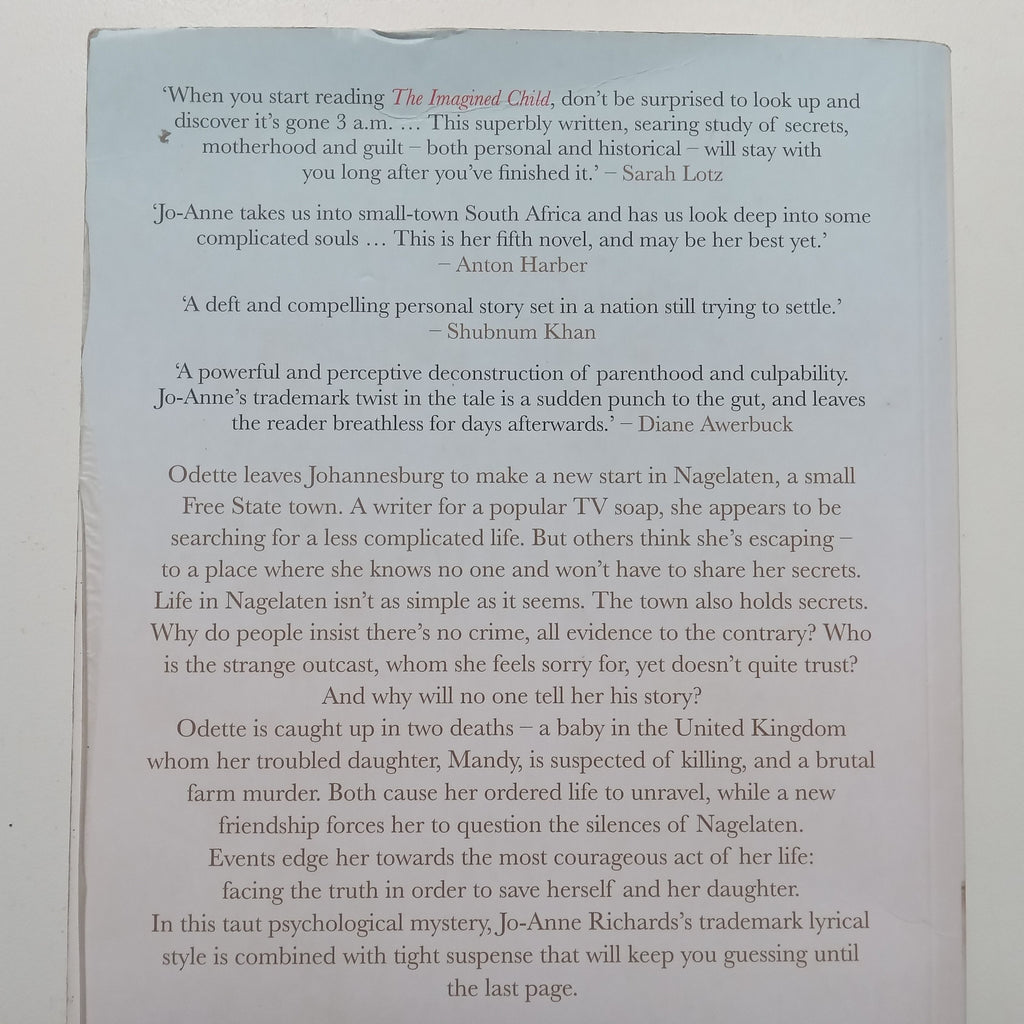 ‘When you start reading The Imagined Child, don’t be surprised to look up and
discover it’s gone 3 a.m. … This superbly written, searing study of secrets,
motherhood and guilt – both personal and historical – will stay with
you long after you’ve finished it.’ – Sarah Lotz
‘Jo-Anne takes us into small-town South Africa and has us look deep into some
complicated souls … This is her fifth novel, and may be her best yet.’
– Anton Harber
‘A deft and compelling personal story set in a nation still trying to settle.’
– Shubnum Khan
‘A powerful and perceptive deconstruction of parenthood and culpability.
Jo-Anne’s trademark twist in the tale is a sudden punch to the gut, and leaves
the reader breathless for days afterwards.’ – Diane Awerbuck
Odette leaves Johannesburg to make a new start in Nagelaten, a small
Free State town. A writer for a popular TV soap, she appears to be
searching for a less complicated life. But others think she’s escaping –
to a place where she knows no one and won’t have to share her secrets.
Life in Nagelaten isn’t as simple as it seems. The town also holds secrets.
Why do people insist there’s no crime, all evidence to the contrary? Who
is the strange outcast, whom she feels sorry for, yet doesn’t quite trust?
And why will no one tell her his story?
Odette is caught up in two deaths – a baby in the United Kingdom
whom her troubled daughter, Mandy, is suspected of killing, and a brutal
farm murder. Both cause her ordered life to unravel, while a new
friendship forces her to question the silences of Nagelaten.
Events edge her towards the most courageous act of her life:
facing the truth in order to save herself and her daughter.
In this taut psychological mystery, Jo-Anne Richards’s trademark lyrical
style is combined with tight suspense that will keep you guessing until
the last page.